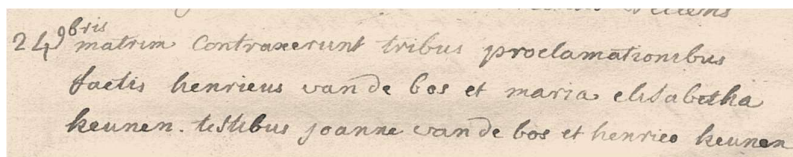 24 9bris
matrim contraxerunt tribus proclamationibus
factis henricus van de bos et maria elisabetha
keunen. testibus joanne van de bos et henrico keunen